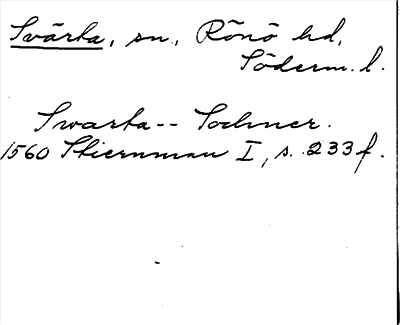 Svärta, sn., Rönö hd,
Söderm. l.
Swarta-- Sochner.
1560 Stiernman I, s. 233 f.